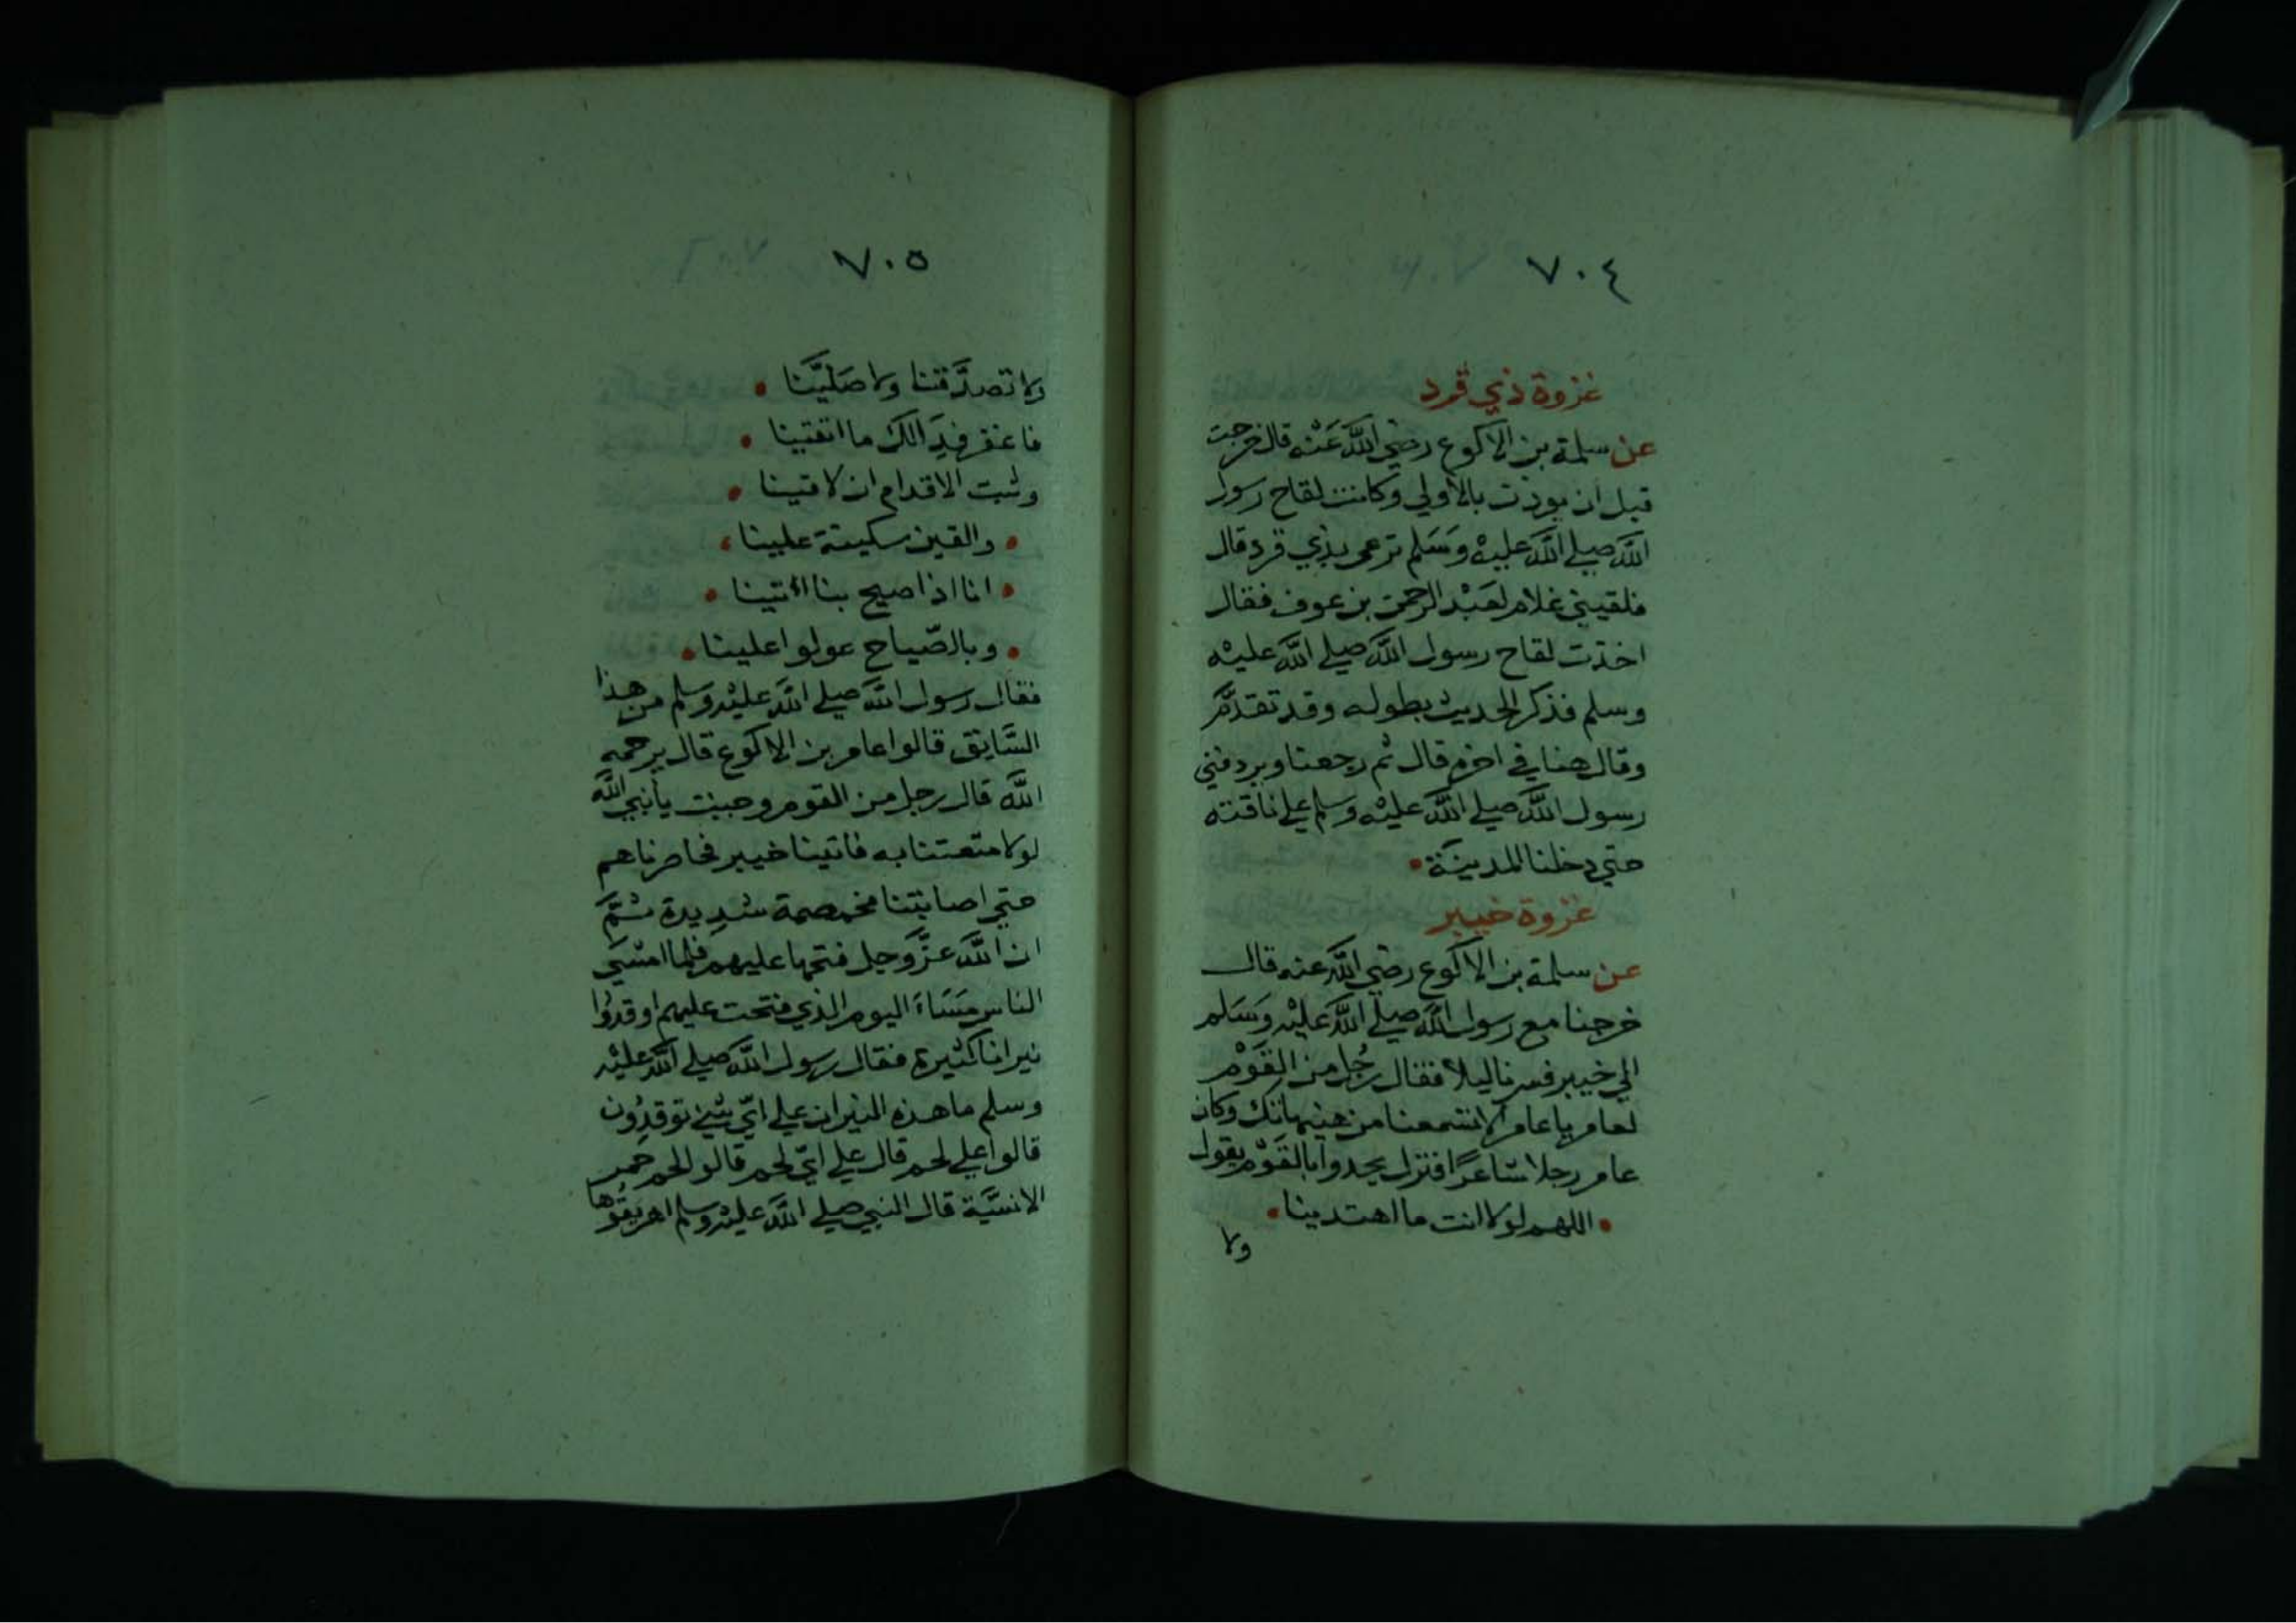 ٧٠٤
غزوة ذي قرد
عن سلمة بن الاكوع رضي اللَّه عَنْه قال خرجت
قبل ان يوذن بالاولي وكانت لقاح رسول
اللَّه صلي اللَّه عليهْ وَسَلم ترعي بذي قرد قال
فلقيني غلام لعَبْد الرحمن بن عوف فقال
اخذت لقاح رسول اللَّه صلي اللَّه عليهْ
وسلم فذكر الحديث بطوله وقد تقدَّم
وقال هنا في اخره قال ثم رجعنا ويردفني
رسول اللَّه صلي اللَّه عليهْ وسلم علي ناقته
حتي دخلنا المدينَة
غزوة خيبر
عن سلمة بن الاكوع رضي اللَّه عنه قال
خرجنا مع رسول اللَّه صلي اللَّه عليْه وَسَلم
الي خيبر فسرنا ليلا فقال رجُل من القَوْم
لعامر يا عامر الا تسمعنا من هنيهاتك وكان
عامر رجلا شاعرًا فنزل يحدوا بالقَوْم يقول
اللهم لولا انت ما اهتدينا
ولا
٧٠٥
ولا تصدَّقنا ولا صَليَّنا
فاغفر فِدَا لك ما اتقينا
وثبت الاقدام ان لاقينا
والقين سكينة علينا
انا اذا صيح بنا اتينا
وبالصّياح عولوا علينا
فقال رسول اللَّه صلي اللَّه عليْه وسلم من هذا
السَّايق قالوا عامر بن الاكوع قال يرحمه
اللَّه قال رجل من القوم وجبت يا نبي اللَّه
لولا متعتنا به فاتينا خيبر فحاصرناهم
حتي اصابتنا مخمصة شدِيدة ثمَّ
ان اللَّه عزَّوجل فتحها عليهم فلما امسَي
الناس مَسَاءَ اليوم الذي فتحت عليهم اوقدُوا
نيرانا كثيرة فقال رسول اللَّه صلي اللَّه عليْه
وسلم ما هذه النيران علي ايّ شي توقدُون
قالوا علي لحم قال علي ايّ لحم قالو لحم حمر
الانسيَّة قال النبي صلي اللَّه عليْه وسلم اهريقُوها